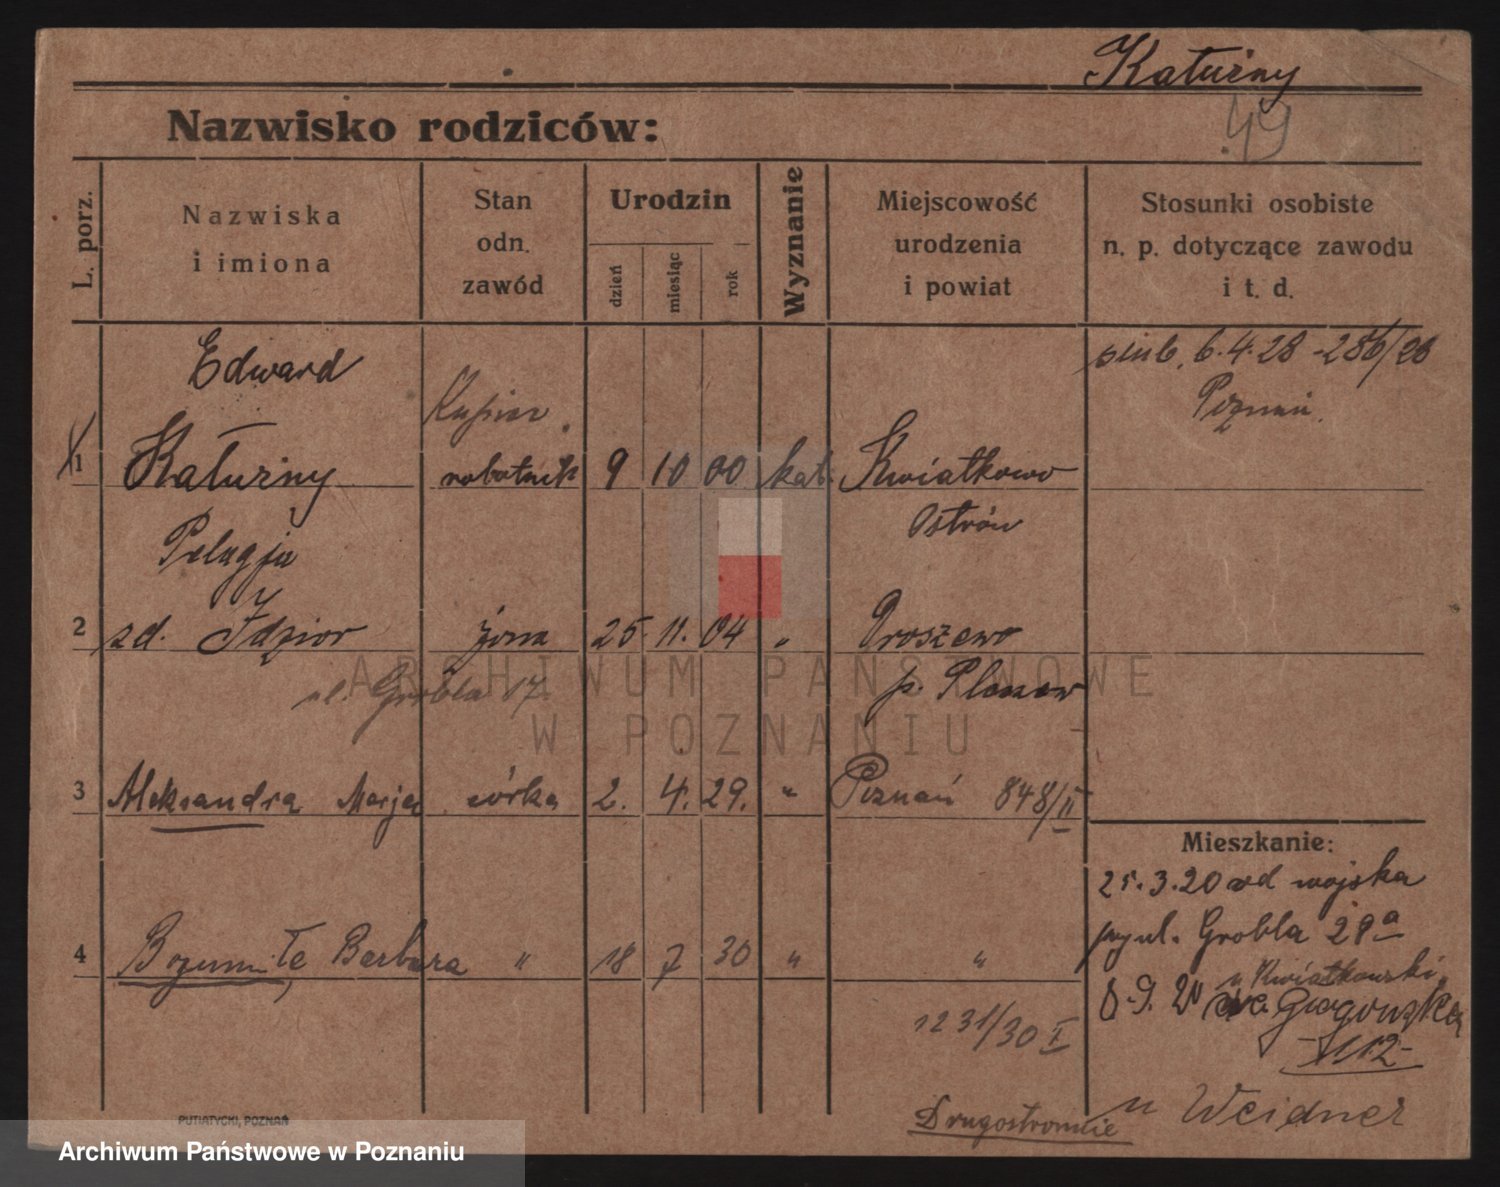 Kałużny
49
Nazwisko rodziców:
L. porz.
Nazwiska
i imiona
Stan
odn.
zawód
Urodzin
dzień
miesiąc
rok
Wyznanie
Miejscowość
urodzenia
i powiat
Stosunki osobiste
n. p. dotyczące zawodu
i t. d.
Edward
ślub. 6.4.28 - 286/28
Kupiec
Poznań.
1 Kałużny robotnik 9 10 00 kat. Kwiatkowo
Ostrów
Pelagja
2 zd. Idzior żona 25. 11. 04 " Droszewo
ul. Grobla 17.
p. Pleszew
ARCHIWUM PAŃSTWOWE
W POZNANIU
3 Aleksandra Marja córka 2. 4. 29. " Poznań 848/II
Mieszkanie:
25.3.20 od wojska
przy ul. Grobla 29a
4 Bogumiła, Barbara " 18 7 30 " "
u Kwiatkowski
8.9. 20
112
1231/30 I
Drugostronnie
u Weidner
PUTIATYCKI, POZNAŃ
Archiwum Państwowe w Poznaniu